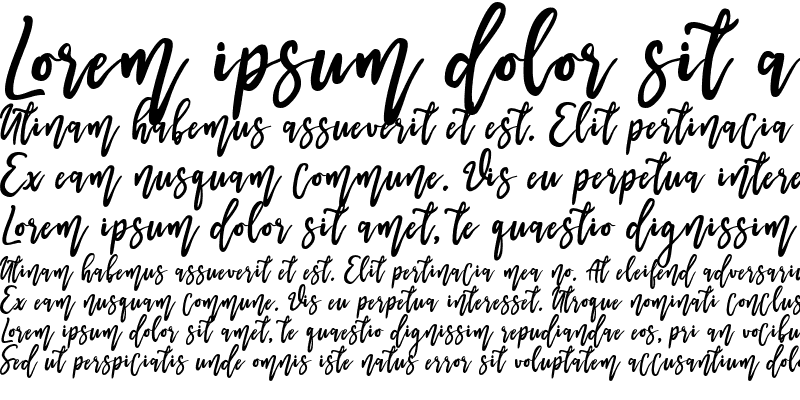 Lorem ipsum dolor sit a
Utinam habemus assueverit et est. Elit pertinacia
Ex eam nusquam commune. Vis eu perpetua intere
Lorem ipsum dolor sit amet, te quaestio dignissim
Utinam habemus assueverit et est. Elit pertinacia mea no. At eleifend adversariu
Ex eam nusquam commune. Vis eu perpetua interesset. Utroque nominati conclus
Lorem ipsum dolor sit amet, te quaestio dignissim repudiandae eos, pri an vocibu
Sed ut perspiciatis unde omnis iste natus error sit voluptatem accusantium dolo